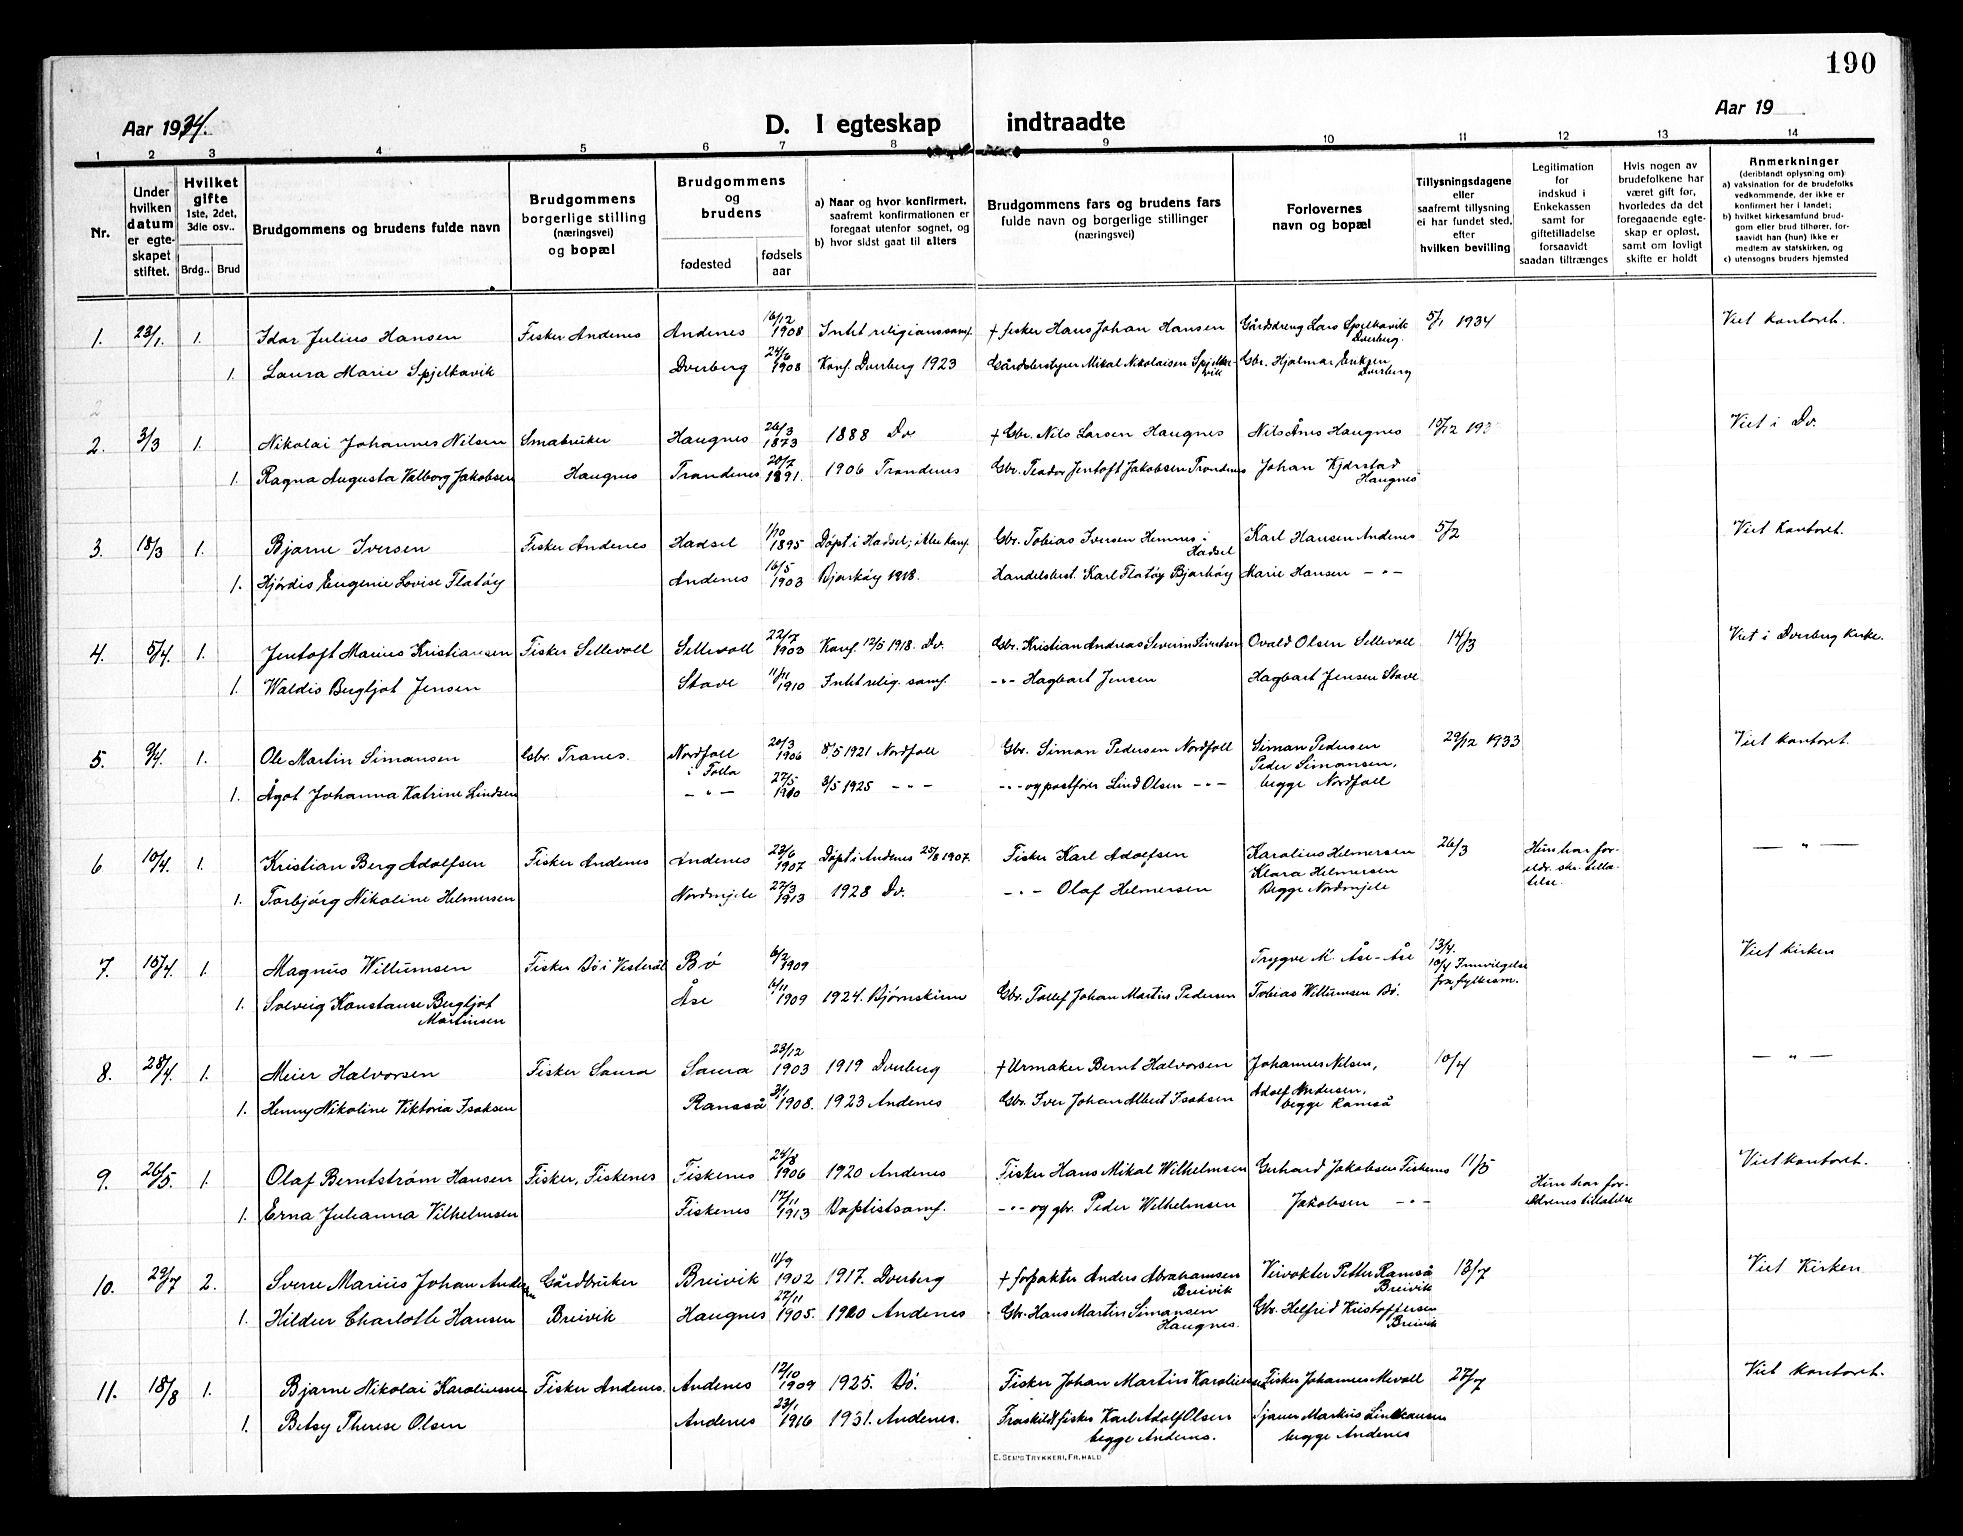 190
Aar 1934.
D. I egteskap indtraadte
Aar 19
1 2 3 4 5 6 7 8 9 10 11 12 13 14
Nr.
Under hvilken datum er egteskapet stiftet.
Hvilket gifte 1ste, 2det, 3die osv..
Brdg.. Brud
Brudgommens og brudens fulde navn
Brudgommens borgerlige stilling (næringsvei) og bopæl
Brudgommens og brudens
fødested
fødsels aar
a) Naar og hvor konfirmert, saafremt konfirmationen er foregaat utenfor sognet, og
b) hvor sidst gaat til alters
Brudgommens fars og brudens fars fulde navn og borgerlige stillinger (næringsvei)
Forlovernes navn og bopæl
Tillysningsdagene eller saafremt tillysning ei har fundet sted, efter hvilken bevilling
Legitimation for indskud i Enkekassen samt for giftetilladelse forsaavidt saadan tiltrænges
Hvis nogen av brudefolkene har været gift før, hvorledes da det foregaaende egteskap er opløst, samt om lovligt skifte er holdt
Anmerkninger (deriblandt oplysning om) a) vaksination for de brudefolks vedkommende, der ikke er konfirmert her i landet; b) hvilket kirkesamfund brudgom eller brud tilhører, forsaavidt han (hun) ikke er medlem av statskirken, og c) utensogns bruders hjemsted
1. 23/1. 1. Idar Julius Hansen Fisker Andenes Andenes 16/12 1908 Intet religionssamf. + fisker Hans Johan Hansen Gårdsdreng Lars Spelkavik Dverberg. 5/1 1934 Viet kontoret.
1. Laura Marie Spjelkavik Dverberg 24/6 1908 Konf. Dverberg 1923 Gårdbestyrer Mikal Nikolaisen Spjelkavik Gbr. Hjalmar Eriksen Dverberg
2
2. 3/3 1. Nikolai Johannes Nilsen Småbruker Haugnes 26/3 1873 1888 Dv + Gbr. Nils Larsen Haugnes Nils Ånes Haugnes 19/12 193 Viet i Dv.
1. Ragna Augusta Valborg Jakobsen Haugnes Trondenes 20/7 1891. 1906 Trondenes Gbr. Teodor Jentoft Jakobsen Trondenes Johan Kjørstad Haugnes
3. 18/3 1. Bjarne Iversen Fisker Andenes Hadsel 1/10 1895 Døpt i Hadsel; ikke konf. Gbr. Tobias Iversen Hennes i Hadsel Karl Hansen Andenes 5/2 Viet kontoret.
1. Hjørdis Eugenie Lovise Flatøy Andenes 16/5 1903 Bjarkøy 1918. Handelsbest. Karl Flatøy Bjarkøy Marie Hansen -"-
4. 5/4. 1. Jentoft Marius Kristiansen Fisker Sellevoll Sellevoll 22/7 1903 Konf. 12/5 1918. Dv. Gbr. Kristian Andreas Severin Sivertsen Ovald Olsen Sellevoll 14/3 Viet i Dverberg kirke.
1. Waldis Bergljot Jensen Stave 11/11 1910 Intet relig. samf. -"- Hagbart Jensen Hagbart Jensen Stave
5. 9/4. 1. Ole Martin Simonsen Gbr. Tranes. Nordfoll i Folla 20/3 1906 8/5 1921 Nordfoll Gbr. Simon Pedersen Nordfoll Simon Pedersen 29/12 1933 Viet kontoret.
1. Ågot Johanna Katrine Lindsen -"- 22/5 1910 3/5 1925 -"- -"- og postfører Lind Olsen -"- Peder Simonsen, begge Nordfoll
6 10/4. 1. Kristian Berg Adolfsen Fisker Andenes Andenes 23/6 1907 Døpt i Andenes 25/8 1907. Fisker Karl Adolfsen Karolius Helmersen 26/3 Hun har foreldr. skr. tillatelse. -"-
1. Torbjørg Nikoline Helmersen Nordmjele 27/3 1913 1928 Dv. -"- Olaf Helmersen Klara Helmersen Begge Nordmjele
7. 15/4. 1. Magnus Willumsen Fisker Bø i Vesterål Bø 6/2 1909 Trygve M. Åse-Åse 13/4. 10/4 Innvilgelse fra fylkesm. Viet kirken
1. Solveig Konstanse Bergljot Martinsen Åse 6/11 1909 1924. Bjørnskinn Gbr. Tollef Johan Martin Pedersen Tobias Willumsen Bø.
8. 28/4. 1. Meier Halvorsen Fisker Saura Saura 23/12 1903 1919 Dverberg + Urmaker Bernt Halvorsen Johannes Nilsen, 10/4 -"-
1. Henny Nikoline Viktoria Isaksen Ramså 3/1 1908. 1923 Andenes Gbr. Iver Johan Albert Isaksen Adolf Andersen, begge Ramså
9. 26/5. 1. Olaf Berntstrøm Hansen Fisker, Fiskenes Fiskenes 24/8 1906 1920 Andenes Fisker Hans Mikal Wilhelmsen Gerhard Jakobsen Fiskenes 11/5 Hun har foreldrenes tillatelse Viet kontoret.
1. Erna Julianna Vilhelmsen Fiskenes 17/11 1913 Baptistsamf. -"- og gbr. Peder Wilhelmsen Jakobsen -"-
10. 29/7 2. Sverre Marius Johan Andersen Gårdbruker Breivik 11/9 1902 1917. Dverberg + forpakter Anders Abrahamsen Breivik Veivokter Petter Ramså Breivik 13/7 Viet Kirken
1. Hildur Charlotte Hansen Breivik Haugnes 27/11 1905. 1920 Andenes Gbr. Hans Martin Simonsen Haugnes. Gbr. Helfrid Kristoffersen Breivik
11. 18/8 1. Bjarne Nikolai Karoliussen Fisker Andenes. Andenes 12/10 1909 1925. Bø. Fisker Johan Martin Karoliussen Fisker Johannes Mevoll 27/7 Viet kontoret.
1. Betsy Therese Olsen Andenes 23/1 1916 1931. Andenes. Fraskildt fisker Karl Adolf Olsen begge Andenes. Sjauer Markus Lindkausen begge Andenes
E. SEM'S TRYKKERI, FR.HALD